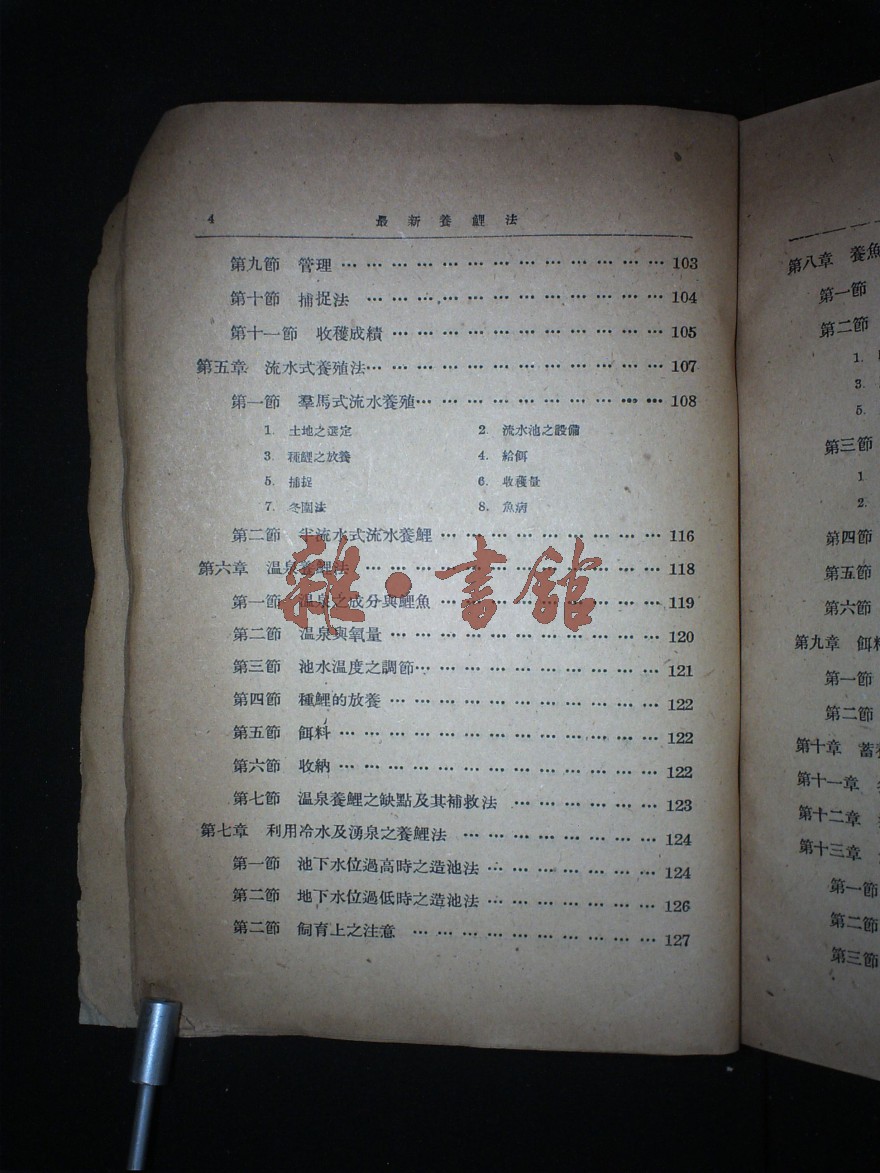 4 最新養鯉法
第九節 管理 … … … … … … … … … … … … … 103
第十節 捕捉法 … … … … … … … … … … … … 104
第十一節 收穫成績 … … … … … … … … … … … 105
第五章 流水式養殖法… … … … … … … … … … … … 107
第一節 羣馬式流水養殖… … … … … … … … … … 108
1. 土地之選定 2. 流水池之設備
3. 種鯉之放養 4. 給餌
5. 捕捉 6. 收穫量
7. 冬圍法 8. 魚病
第二節 半流水式流水養鯉 … … … … … … … … … 116
第六章 温泉養鯉法 … … … … … … … … … … … … 118
第一節 温泉之成分與鯉魚 … … … … … … … … … 119
第二節 温泉與氧量 … … … … … … … … … … … 120
第三節 池水温度之調節… … … … … … … … … … 121
第四節 種鯉的放養 … … … … … … … … … … … 122
第五節 餌料 … … … … … … … … … … … … … 122
第六節 收納 … … … … … … … … … … … … … 122
第七節 温泉養鯉之缺點及其補救法 … … … … … … 123
第七章 利用冷水及湧泉之養鯉法 … … … … … … … … 124
第一節 池下水位過高時之造池法 … … … … … … … 124
第二節 地下水位過低時之造池法 … … … … … … … 126
第二節 飼育上之注意 … … … … … … … … … … 127
雜·書館
第八章 養魚
第一節
第二節
1.
3.
5.
第三節
1
2.
第四節
第五節
第六節
第九章 餌料
第一節
第二節
第十章 蓄
第十一章
第十二章
第十三章
第一節
第二節
第三節